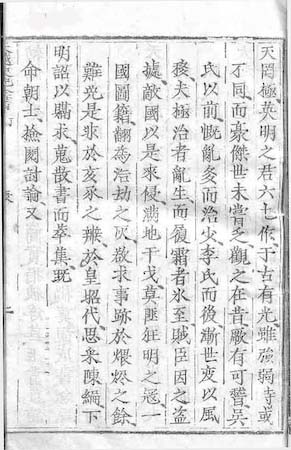 天罔極英明之君六七作于古有光雖強弱時或
不同而豪傑世未嘗乏觀之在昔厥有可吳
氏以前慨亂多而治少李氏而後漸世变以風
移夫極治者亂生而履霜者氷至賊臣因之盗
據敵國以是來侵滿地干戈莫匪狂明之寇一
國圖籍翻為浩劫之灰欲求事跡於煨燼之餘
難免是非於亥豕之辨於皇昭代思釆陳編下
明詔以購求蒐散書而萃集旣
命朝士撿閱討論又